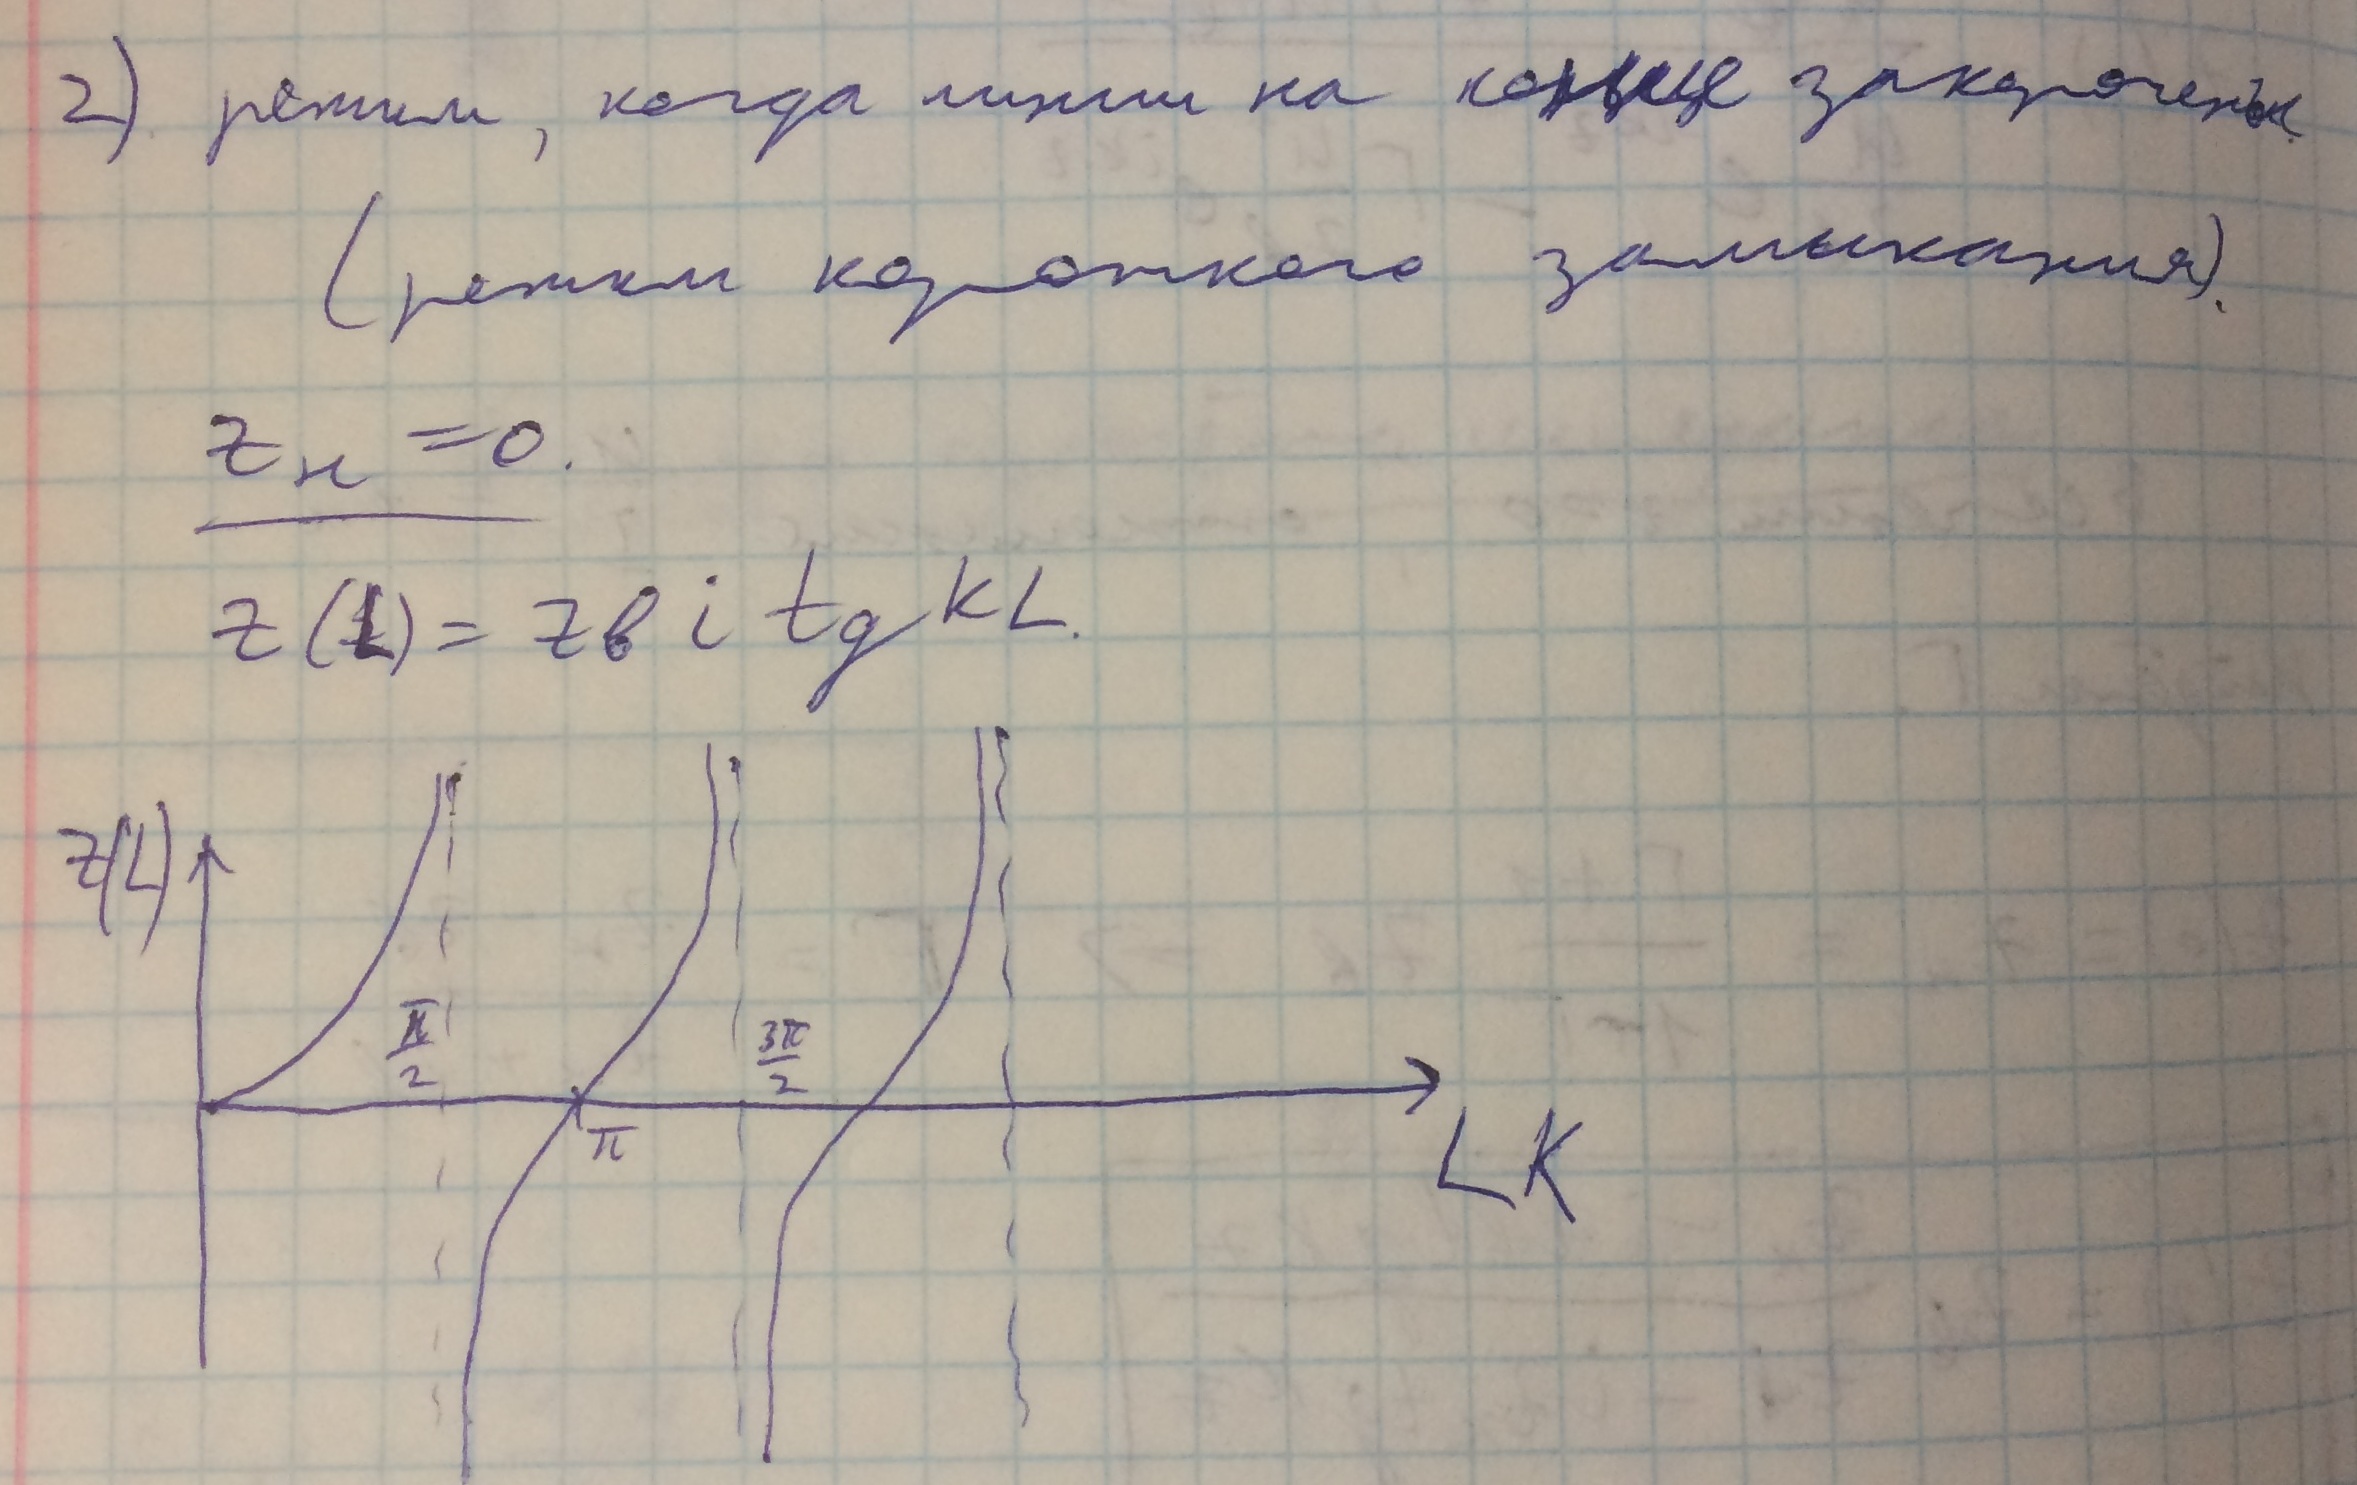 2) режим, когда линии на конце закорочены
(режим короткого замыкания).
zн = 0.
z(L) = zв i tg kL.
z(L)
π/2
3π/2
π
LK